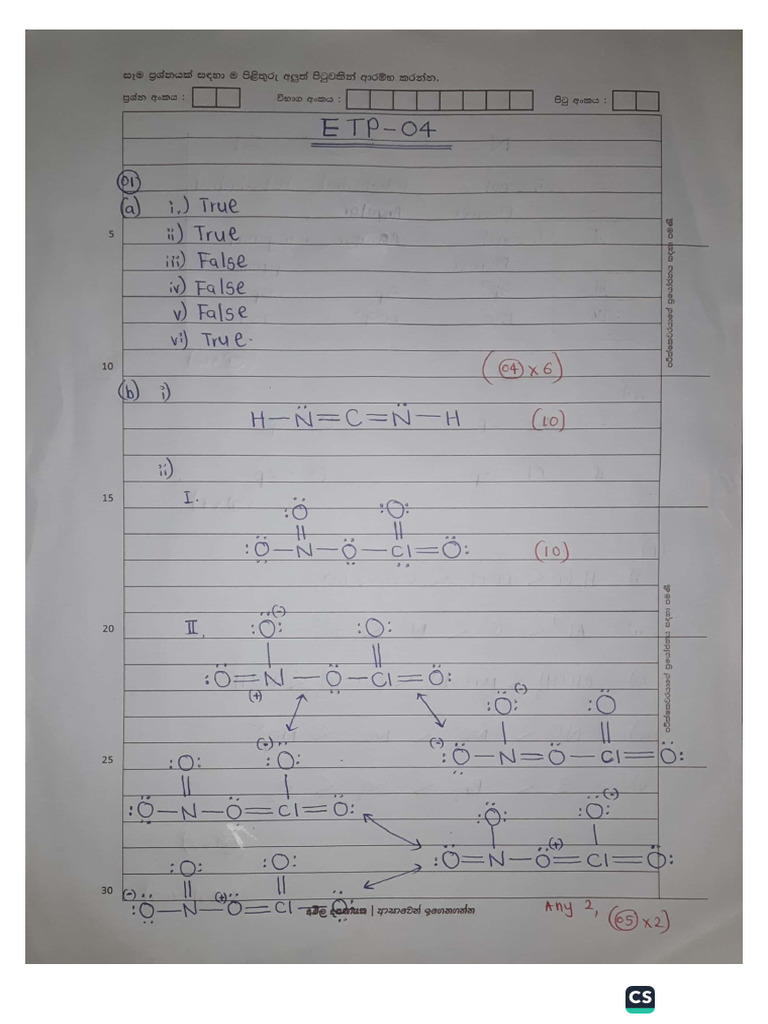 සෑම ප්‍රශ්නයක් සඳහා ම පිළිතුරු අලුත් පිටුවකින් ආරම්භ කරන්න.
ප්‍රශ්න අංකය : විභාග අංකය : පිටු අංකය :
ETP-04
01
(a) i.) True
5 ii) True
iii) False
iv) False
v) False
vi) True.
10 (04 x 6)
(b) i)
H—N=C=N—H (10)
ii)
15 I.
O O
O—N—O—Cl=O (10)
20 II.
(-)
O O
O=N—O—Cl=O
(+)
(-)
O O
(-) O—N=O—Cl=O
25
(-)
O O
O—N—O=Cl=O
(-)
O O
(+)
O=N—O=Cl=O
30
O O
(-) (+)
O—N—O=Cl—O
| ආසාවෙන් ඉගෙනගන්න
Any 2, (05 x 2)
පරීක්ෂකවරයාගේ ප්‍රයෝජනය සඳහා පමණි
පරීක්ෂකවරයාගේ ප්‍රයෝජනය සඳහා පමණි
CS